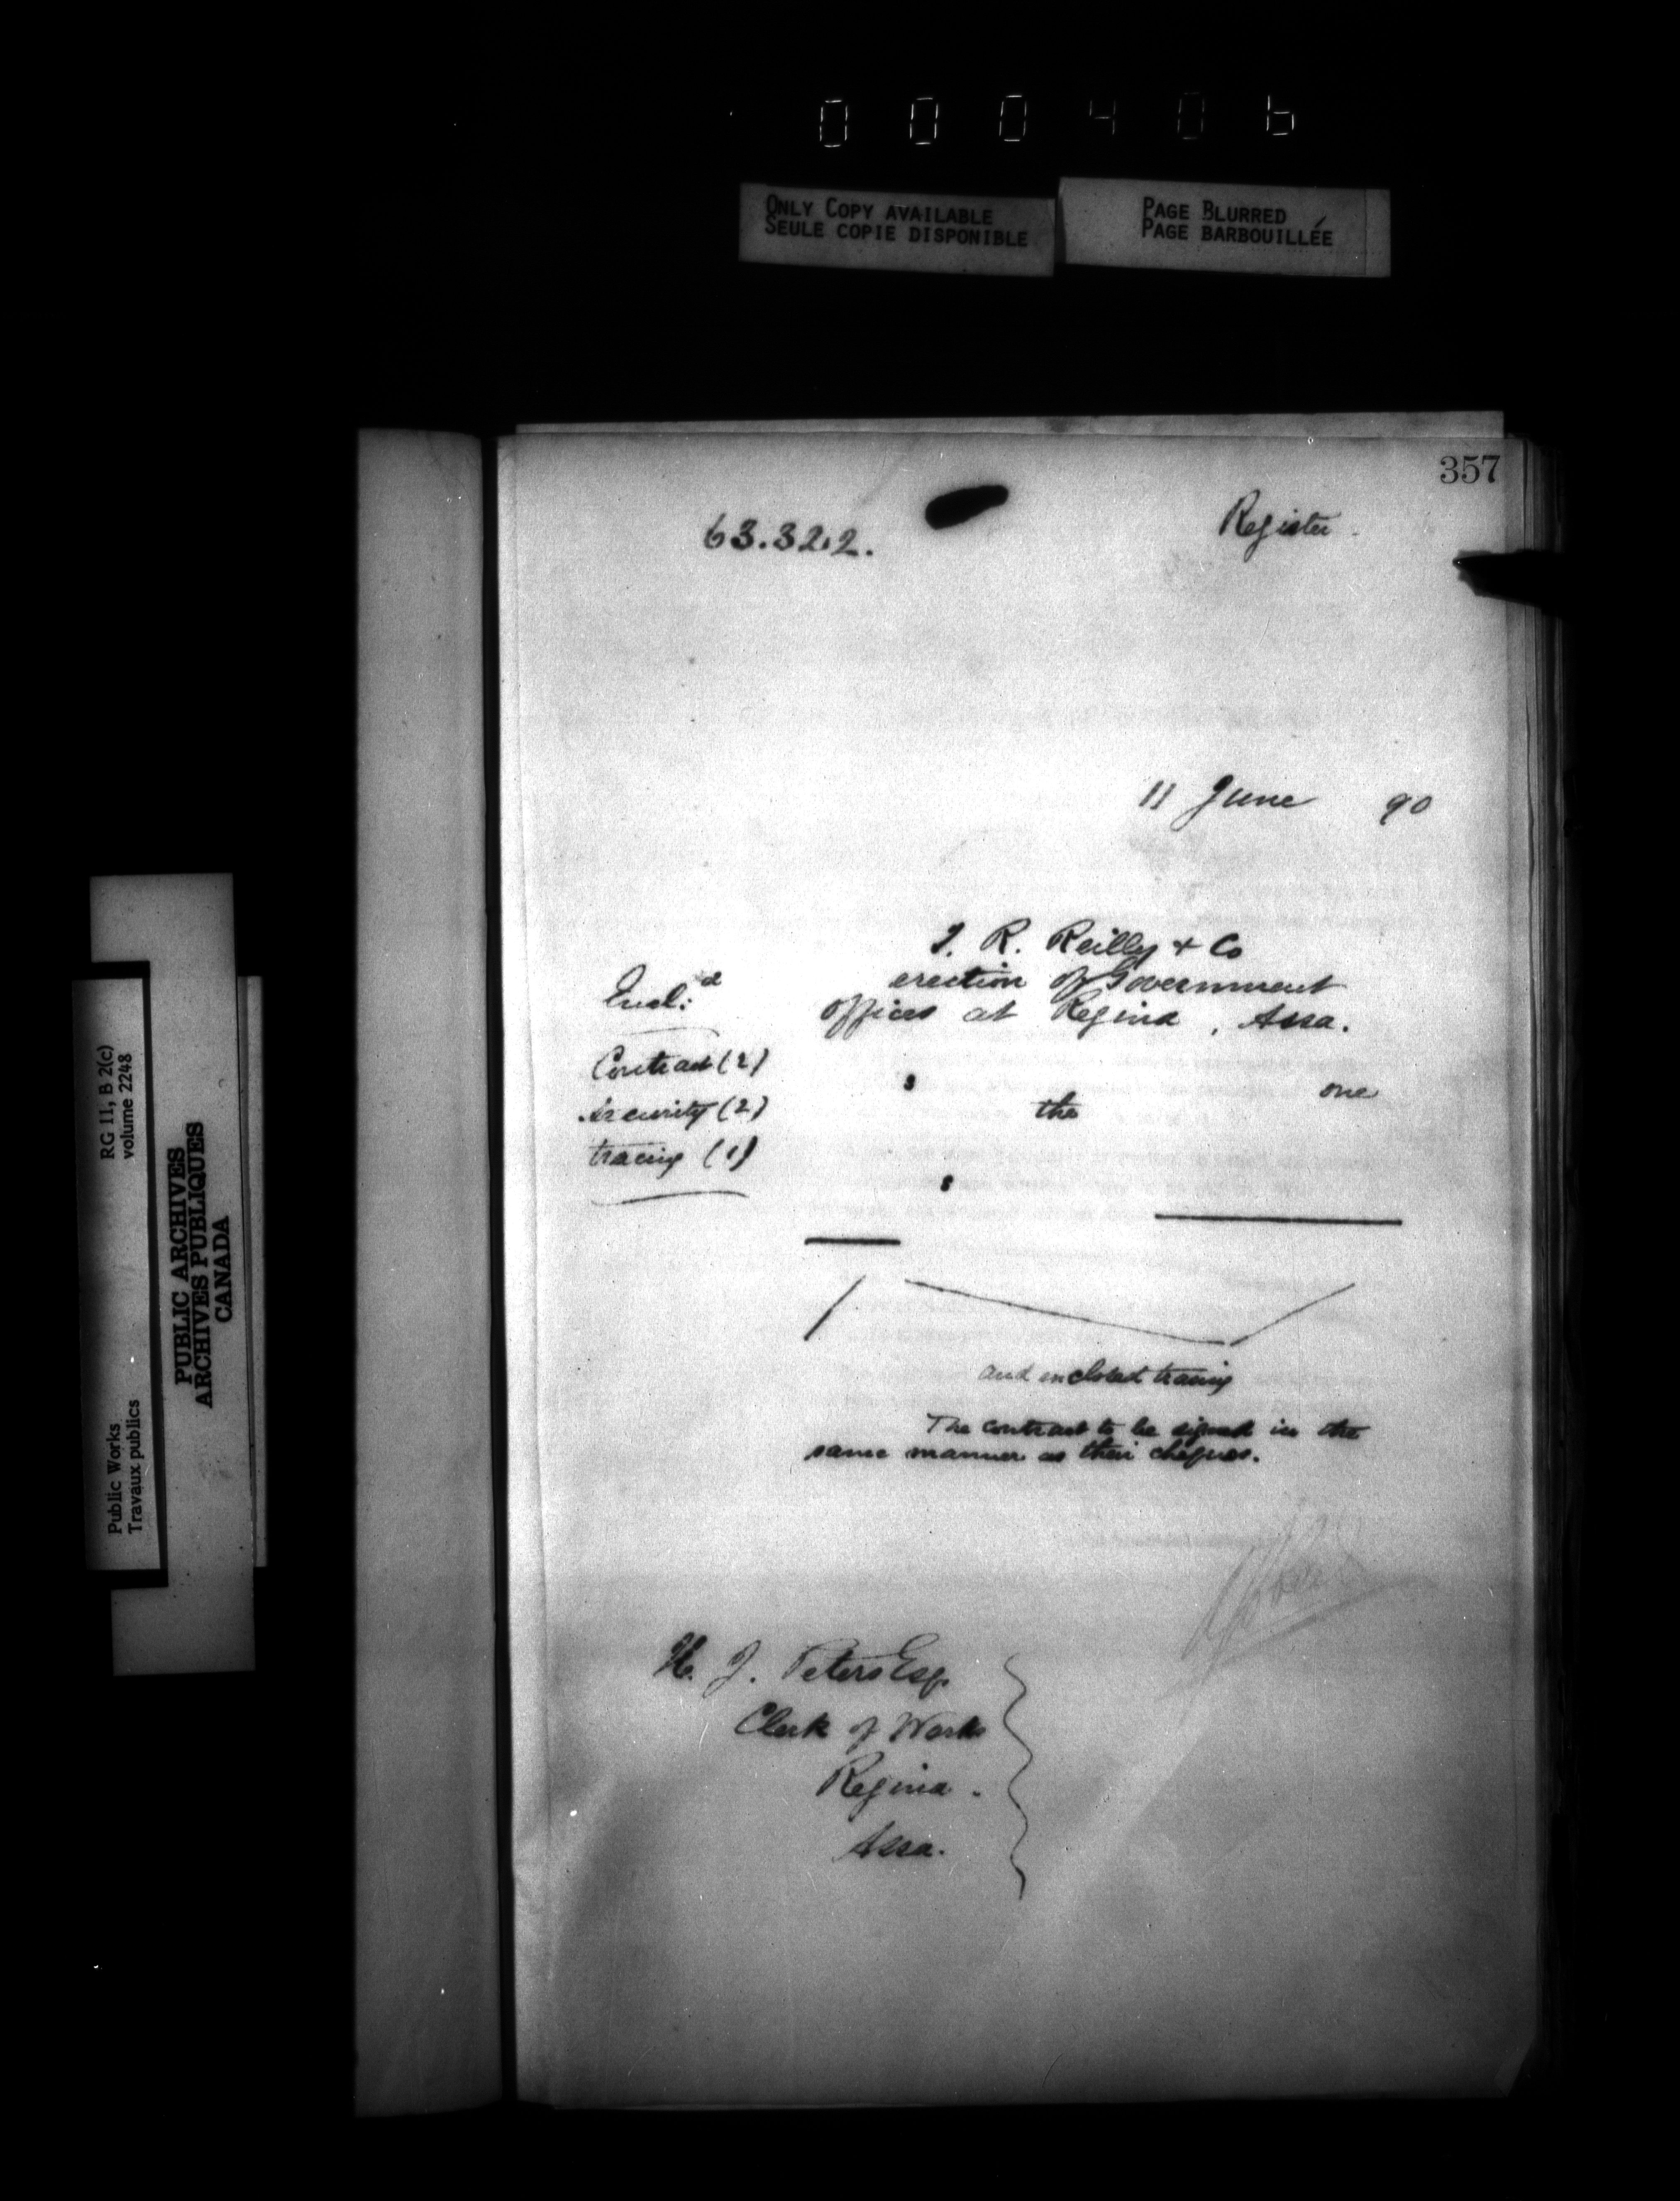 000406
ONLY COPY AVAILABLE
SEULE COPIE DISPONIBLE
PAGE BLURRED
PAGE BARBOUILLÉE
357
63.322.
Register
11 June 90
R. Reilly + Co
erection of Government
offices at Regina, Assa.
Encl:d
Contract (2)
security (2)
tracing (1)
one
the
and enclosed tracing
The contract to be signed in the
same manner as their cheques.
J. Peters Esq.
Clerk of Works
Regina.
Assa.
RG 11, B 2(c)
volume 2248
Public Works
Travaux publics
PUBLIC ARCHIVES
ARCHIVES PUBLIQUES
CANADA